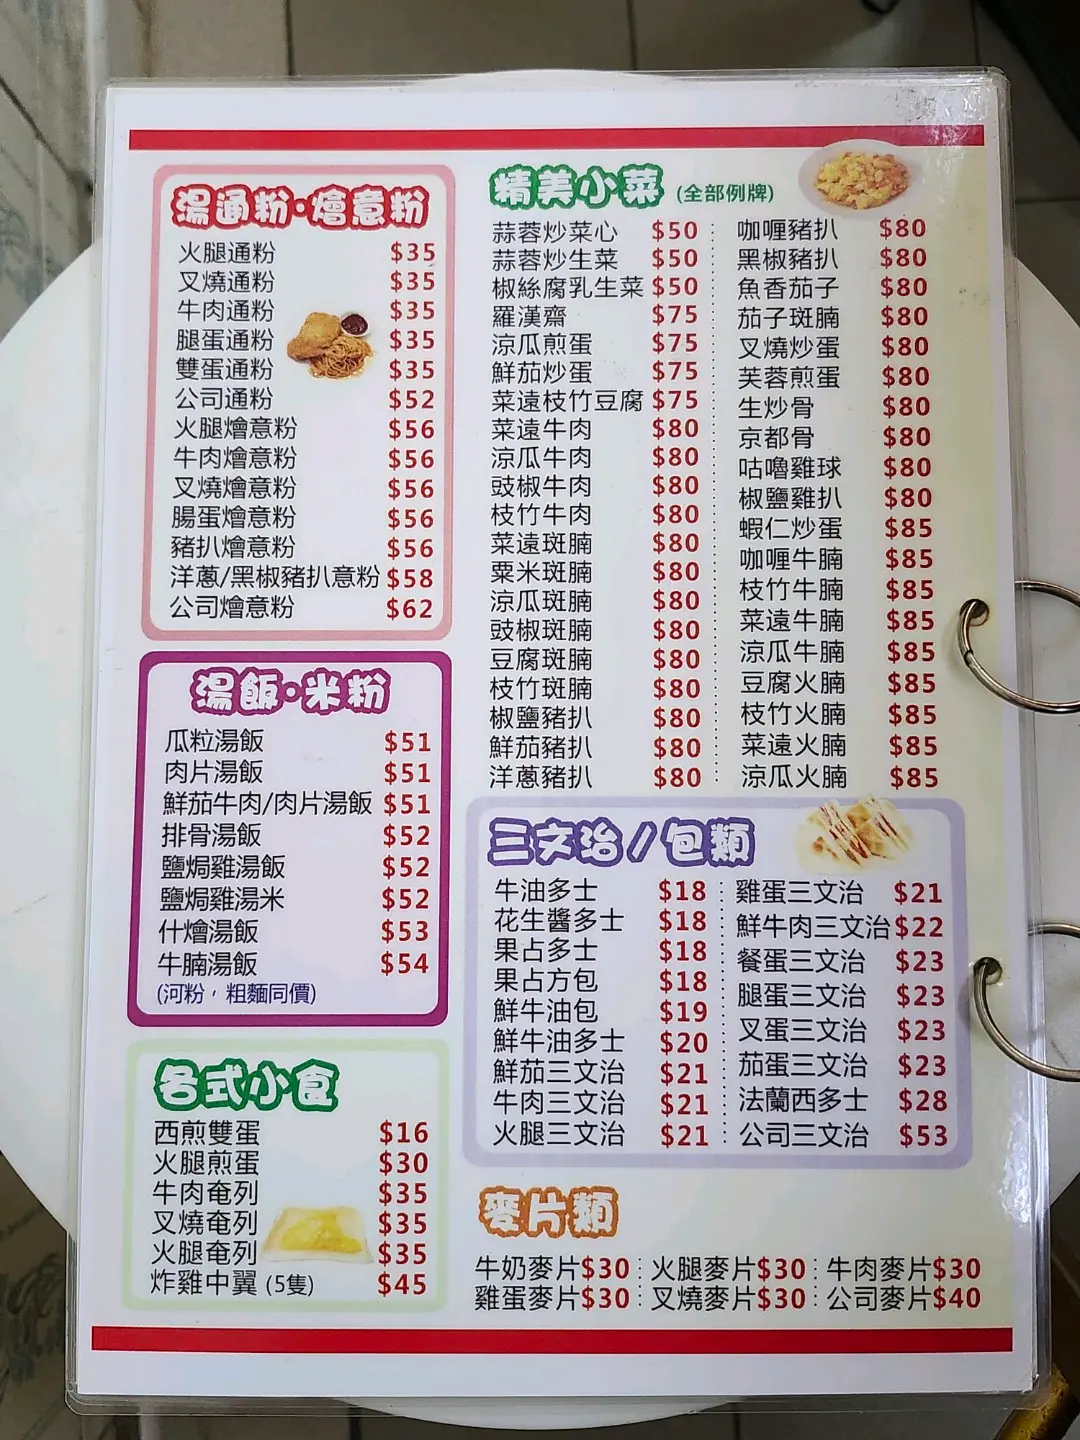 湯通粉・燴意粉
火腿通粉 $35
叉燒通粉 $35
牛肉通粉 $35
腿蛋通粉 $35
雙蛋通粉 $35
公司通粉 $52
火腿燴意粉 $56
牛肉燴意粉 $56
叉燒燴意粉 $56
腸蛋燴意粉 $56
豬扒燴意粉 $56
洋蔥/黑椒豬扒意粉 $58
公司燴意粉 $62
湯飯・米粉
瓜粒湯飯 $51
肉片湯飯 $51
鮮茄牛肉/肉片湯飯 $51
排骨湯飯 $52
鹽焗雞湯飯 $52
鹽焗雞湯米 $52
什燴湯飯 $53
牛腩湯飯 $54
(河粉，粗麵同價)
各式小食
西煎雙蛋 $16
火腿煎蛋 $30
牛肉奄列 $35
叉燒奄列 $35
火腿奄列 $35
炸雞中翼 (5隻) $45
精美小菜 (全部例牌)
蒜蓉炒菜心 $50
蒜蓉炒生菜 $50
椒絲腐乳生菜 $50
羅漢齋 $75
涼瓜煎蛋 $75
鮮茄炒蛋 $75
菜遠枝竹豆腐 $75
菜遠牛肉 $80
涼瓜牛肉 $80
豉椒牛肉 $80
枝竹牛肉 $80
菜遠斑腩 $80
粟米斑腩 $80
涼瓜斑腩 $80
豉椒斑腩 $80
豆腐斑腩 $80
枝竹斑腩 $80
椒鹽豬扒 $80
鮮茄豬扒 $80
洋蔥豬扒 $80
咖喱豬扒 $80
黑椒豬扒 $80
魚香茄子 $80
茄子斑腩 $80
叉燒炒蛋 $80
芙蓉煎蛋 $80
生炒骨 $80
京都骨 $80
咕嚕雞球 $80
椒鹽雞扒 $80
蝦仁炒蛋 $85
咖喱牛腩 $85
枝竹牛腩 $85
菜遠牛腩 $85
涼瓜牛腩 $85
豆腐火腩 $85
枝竹火腩 $85
菜遠火腩 $85
涼瓜火腩 $85
三文治/包類
牛油多士 $18
花生醬多士 $18
果占多士 $18
果占方包 $18
鮮牛油包 $19
鮮牛油多士 $20
鮮茄三文治 $21
牛肉三文治 $21
火腿三文治 $21
雞蛋三文治 $21
鮮牛肉三文治 $22
餐蛋三文治 $23
腿蛋三文治 $23
叉蛋三文治 $23
茄蛋三文治 $23
法蘭西多士 $28
公司三文治 $53
麥片類
牛奶麥片$30 火腿麥片$30 牛肉麥片$30
雞蛋麥片$30 叉燒麥片$30 公司麥片$40